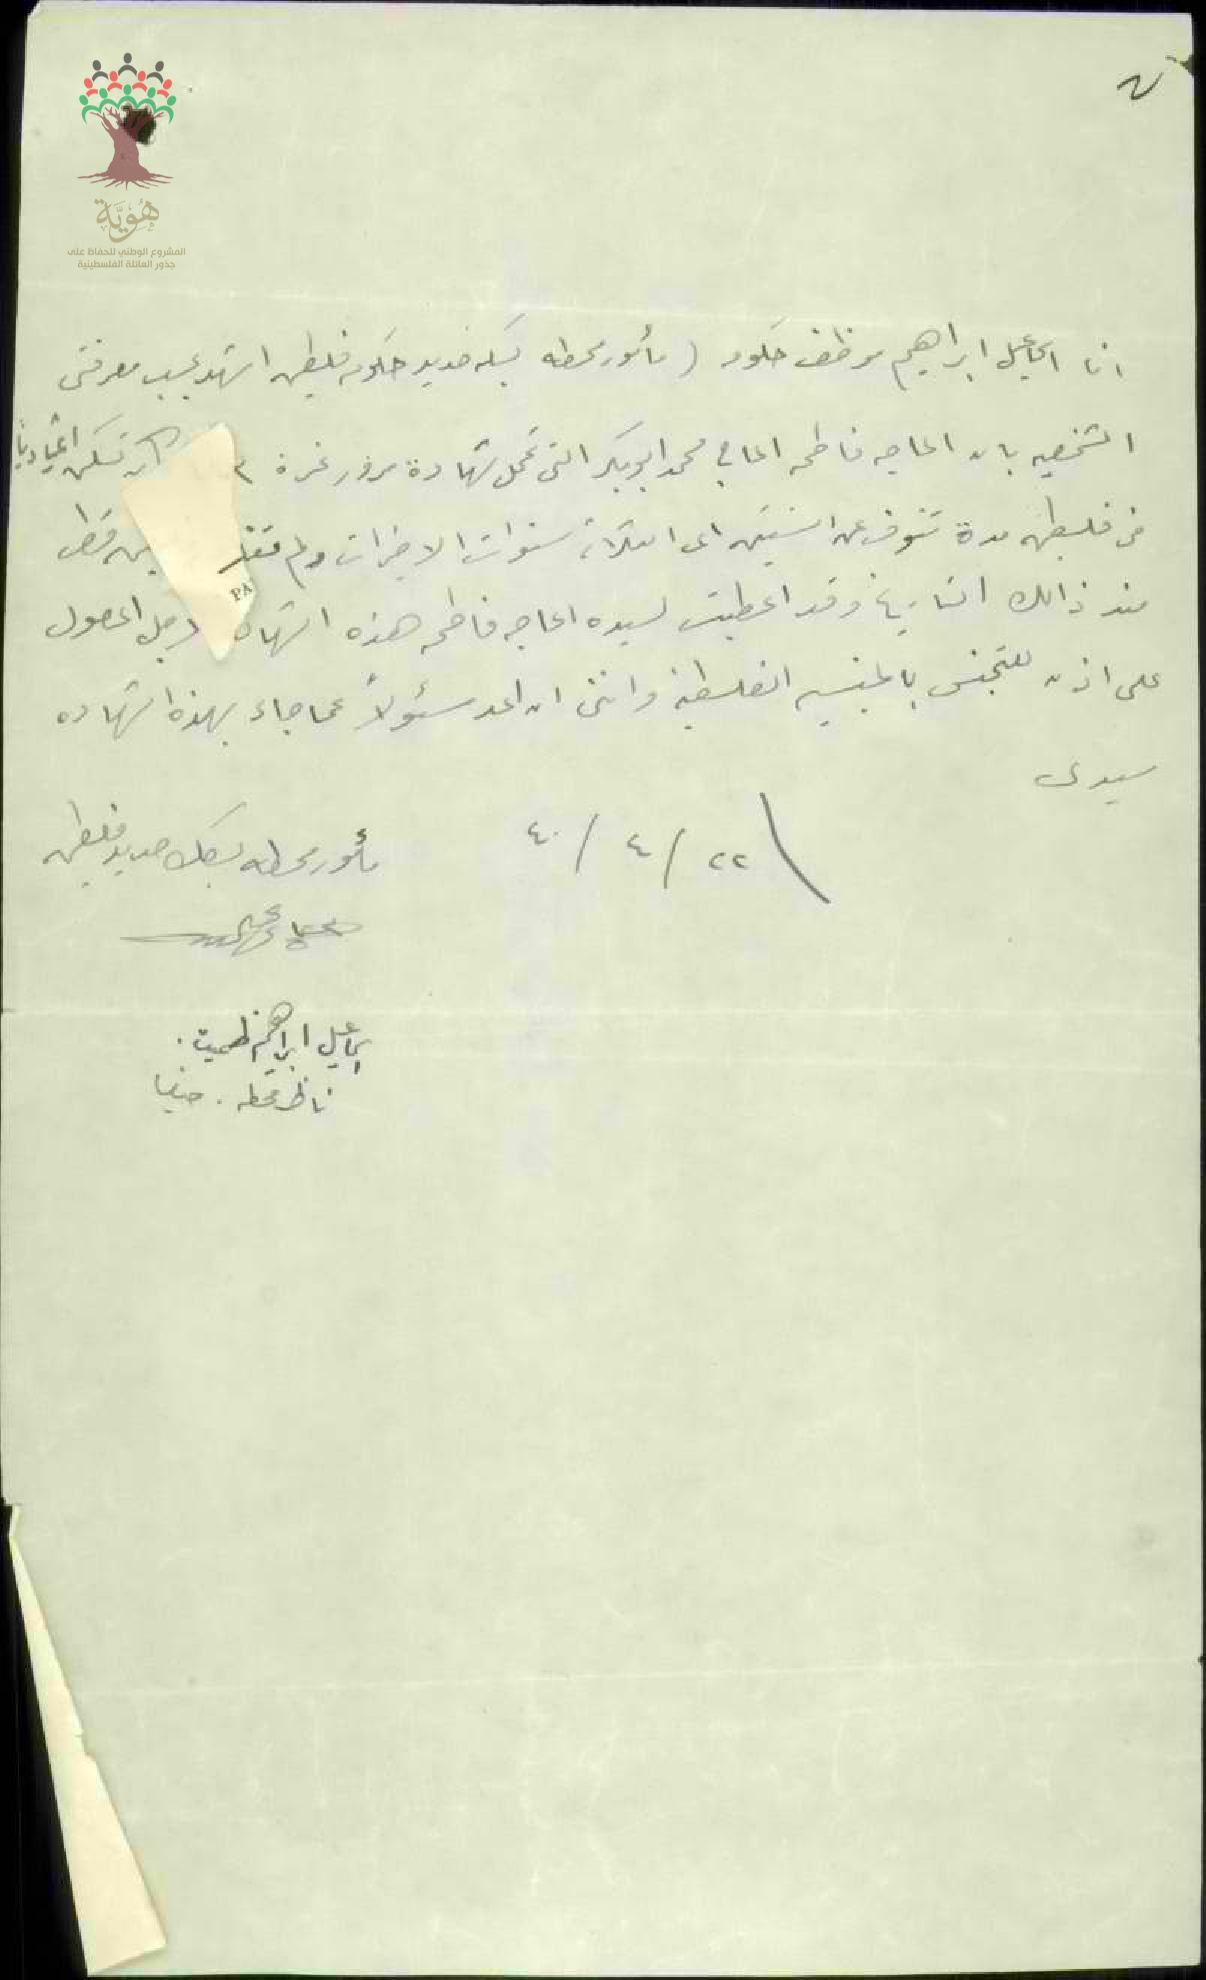 هُوِيَّة
المشروع الوطني للحفاظ على
جذور العائلة الفلسطينية
انا اسماعيل ابراهيم موظف حكومه ( مأمور محطه بسكه حديد حكومة فلسطين اشهد بحسب معرفتي
الشخصيه بان الحاجه فاطمه الحاج محمد ابو بكر التي تحمل شهادة مرور نمرة تسكن اعتياديا
في فلسطين مدة تنوف عن السنتين الى الثلاث سنوات الاخيرات ولم قط
منذ ذالك التاريخ وقد اعطيت لسيده الحاجه فاطمه هذه الشهاده لاجل الحصول
على اذن للتجنس بالجنسيه الفلسطينية وانني ان اعد مسئولاً عما جاء بهذه الشهاده
سيدي
٢٢ / ٤ / ٤٠
مأمور محطه بسكة حديد فلسطين
اسماعيل ابراهيم
ناظر محطه . حيفا
PA